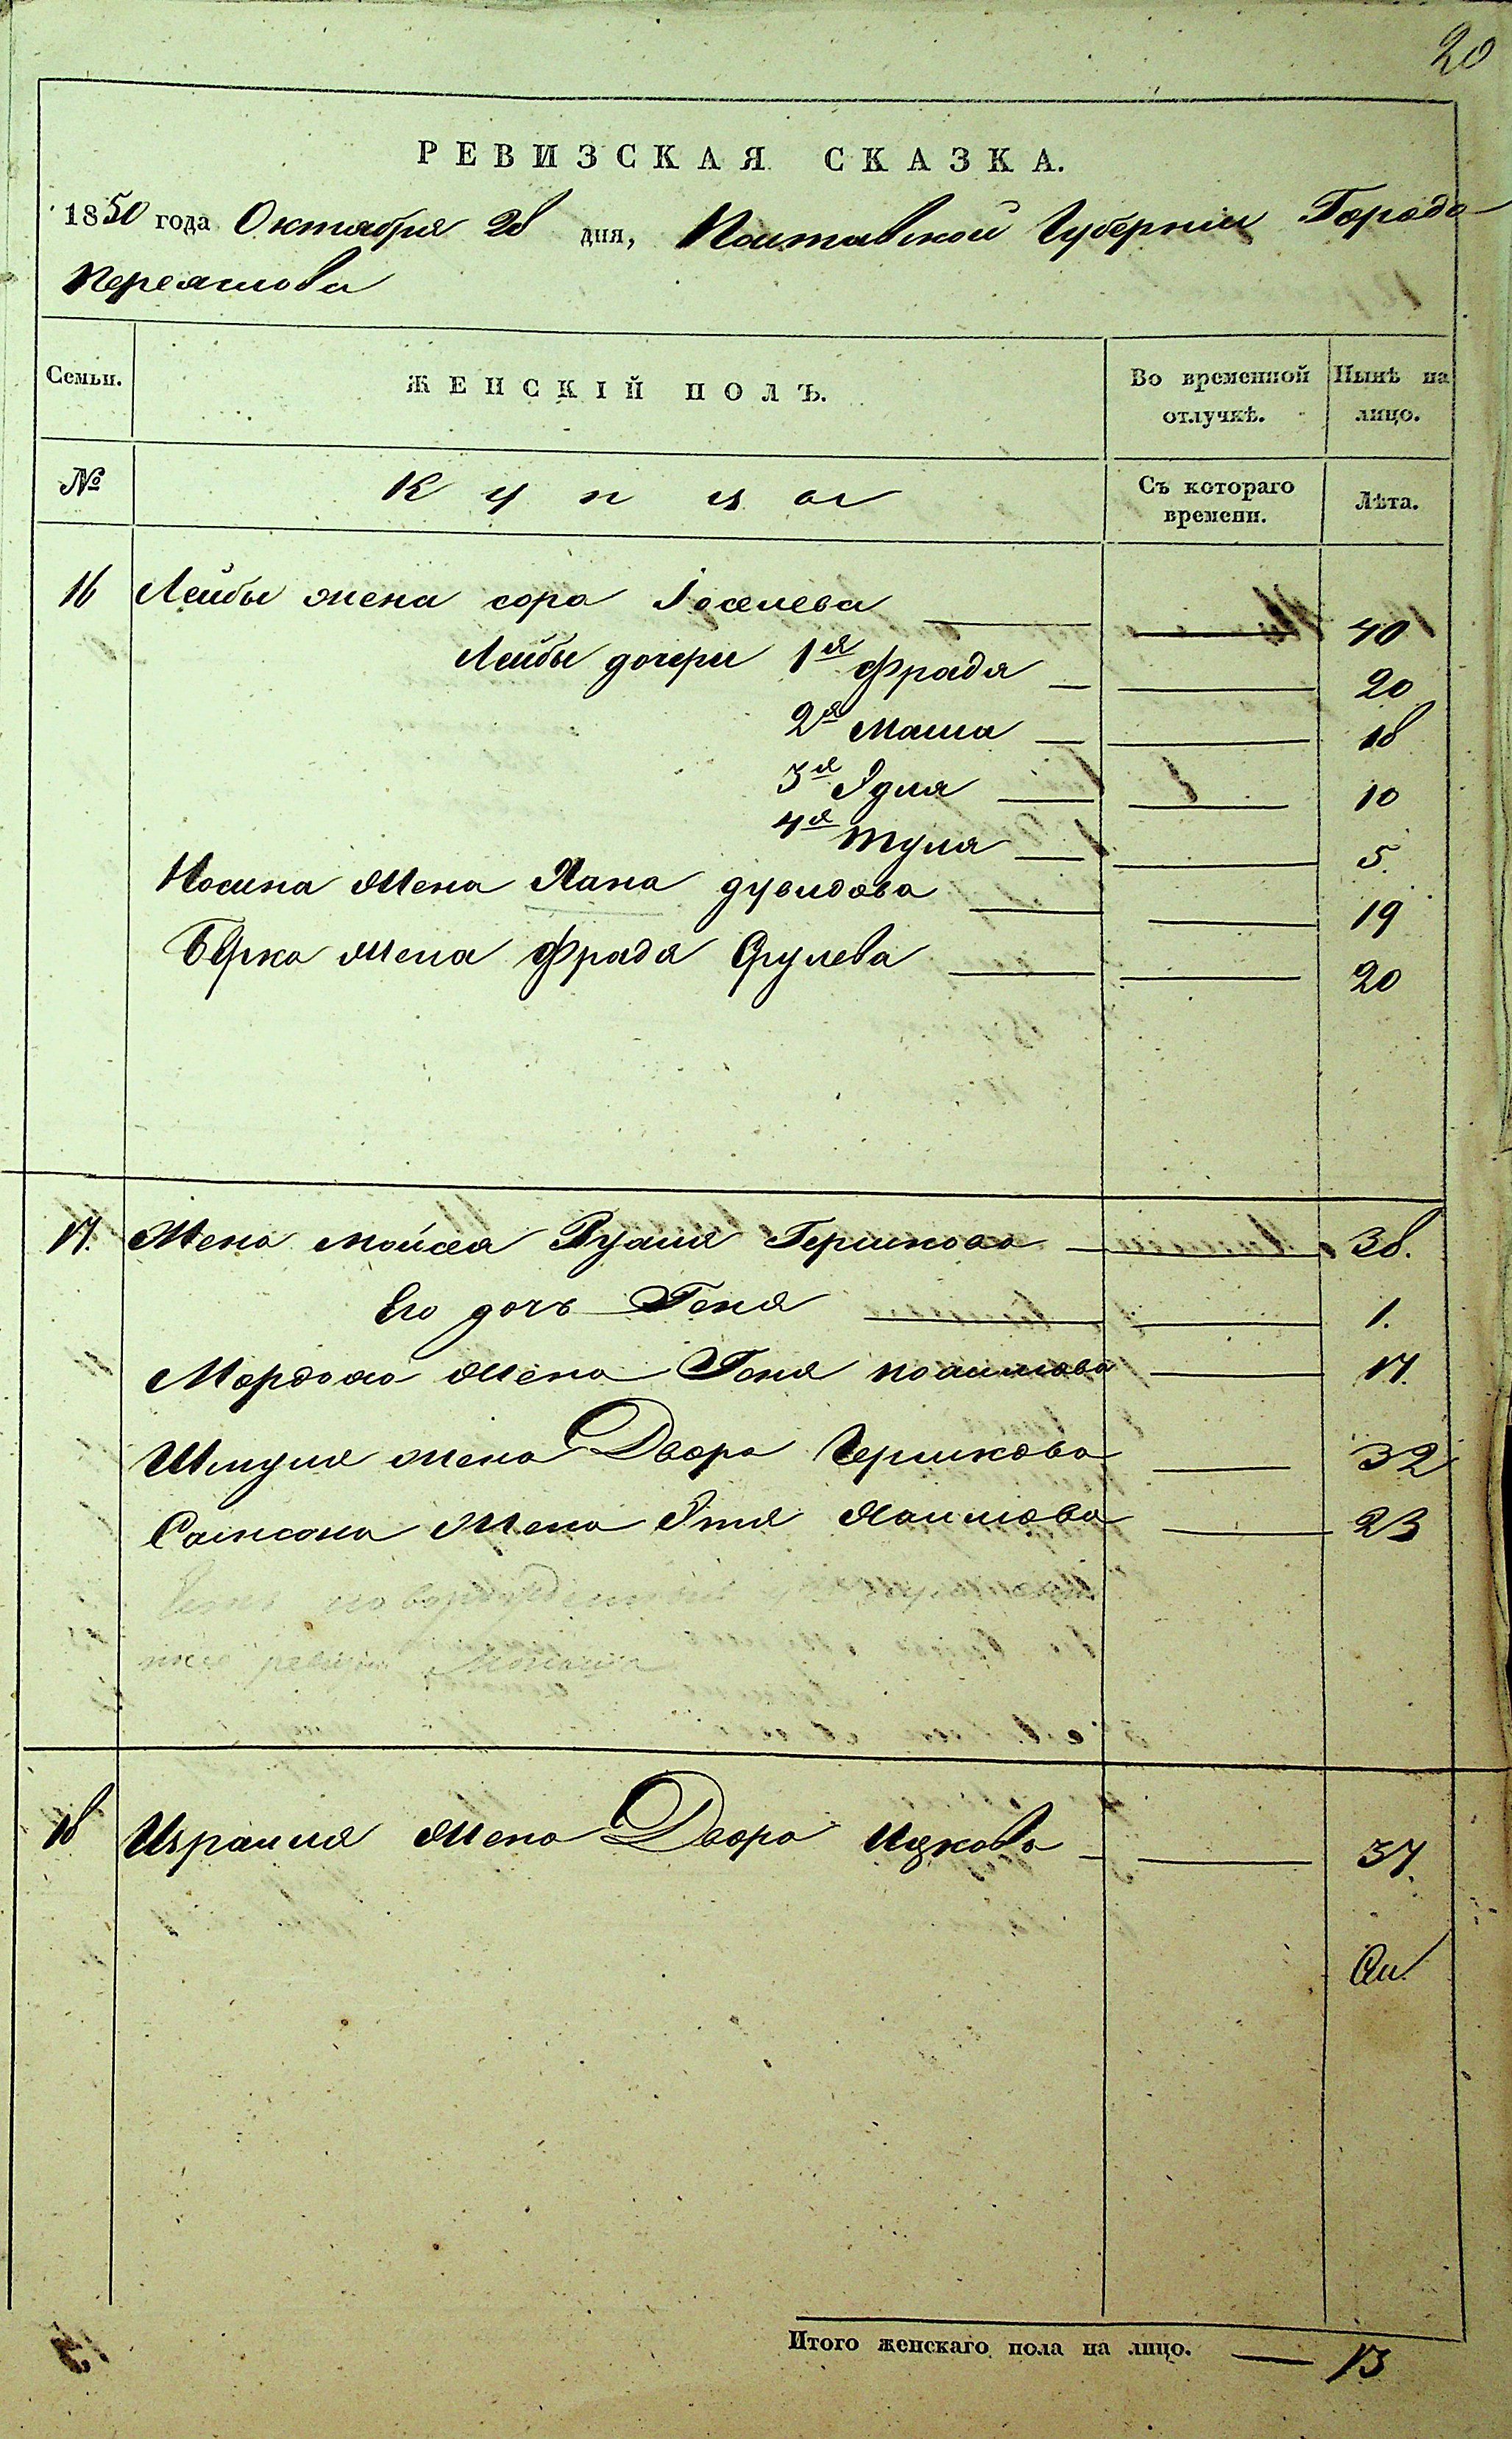 20
РЕВИЗСКАЯ СКАЗКА.
1850 года Октября 28 дня, Полтавской Губерніи Города
Переяслова
Семьи. ЖЕНСКІЙ ПОЛЪ. Во временной отлучкѣ. Нынѣ на лицо.
№ Купцы Съ котораго времени. Лѣта.
16 Лейбы жена сора Іоселева — 40
Лейбы дочери 1я Фрадя — 20
2я Маша — 18
3я Эдля — 10
4я Туля — 5.
Носина Жена Хана дувидова — 19
Бѣрка Жена Фрадя Срулева — 20
17. Жена мойсея Рухля Гершкова — 38.
Его дочь Геня — 1.
Мордохо Жена Геня — 17.
Шмуля жена Двора Гершкова — 32
Самсона Жена Этя Хаимова — 23
18 Израиля Жена Двора Ицкова — 37.
Итого женскаго пола на лицо. — 13